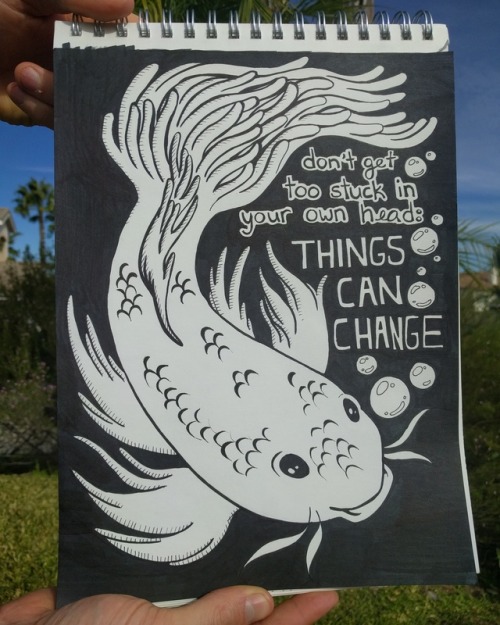 don't get
too stuck in
your own head:
THINGS
CAN
CHANGE